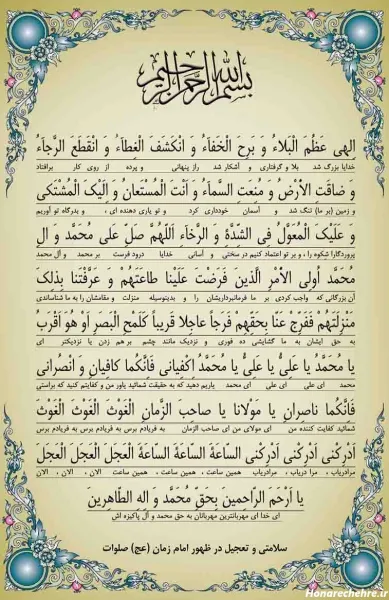 بسم الله الرحمن الرحیم
اِلهی عَظُمَ الْبَلاءُ وَ بَرِحَ الْخَفاءُ وَ انْکَشَفَ الْغِطاءُ وَ انْقَطَعَ الرَّجاءُ
خدایا بزرگ شد بلا و گرفتاری و آشکار شد راز پنهانی و پرده از روی کار برافتاد
وَ ضاقَتِ الاْرْضُ وَ مُنِعَتِ السَّماءُ وَ اَنْتَ الْمُسْتَعانُ وَ اِلَیْکَ الْمُشْتَکی
و زمین (بر ما) تنگ شد و آسمان خودداری کرد و تو یاری دهنده ای ، و بدرگاه تو آوریم
وَ عَلَیْکَ الْمُعَوَّلُ فِی الشِّدَّةِ وَ الرَّخاءِ اَللّهُمَّ صَلِّ عَلی مُحَمَّد وَ الِ
پروردگارا شکوه را ، و بر تو اعتماد کنیم در سختی و آسانی خدایا درود فرست بر محمد و آل محمد
مُحَمَّد اُولِی الاْمْرِ الَّذینَ فَرَضْتَ عَلَیْنا طاعَتَهُمْ وَ عَرَّفْتَنا بِذلِکَ
آن بزرگانی که واجب کردی بر ما فرمانبرداریشان را و بدینوسیله منزلت و مقامشان را به ما شناساندی
مَنْزِلَتَهُمْ فَفَرِّجْ عَنّا بِحَقِّهِمْ فَرَجاً عاجِلا قَریباً کَلَمْحِ الْبَصَرِ اَوْ هُوَ اَقْرَبُ
به حق ایشان به ما گشایشی ده فوری و نزدیک مانند چشم بر هم زدن یا نزدیکتر ای
یا مُحَمَّدُ یا عَلِیُّ یا عَلِیُّ یا مُحَمَّدُ اِکْفِیانی فَاِنَّکُما کافِیانِ وَ انْصُرانی
محمد ای علی ای علی ای محمد یاریم دهید که به حقیقت شمائید یاور من و کفایتم کنید که براستی
فَاِنَّکُما ناصِرانِ یا مَوْلانا یا صاحِبَ الزَّمانِ الْغَوْثَ الْغَوْثَ الْغَوْثَ
شمائید کفایت کننده من ای مولای من ای صاحب الزمان به فریادم برس به فریادم برس به فریادم برس
اَدْرِکْنی اَدْرِکْنی اَدْرِکْنی السّاعَةَ السّاعَةَ السّاعَةَ الْعَجَلَ الْعَجَلَ الْعَجَلَ
مرادریاب، مرا دریاب، مرادریاب همین ساعت، همین ساعت، همین ساعت الان، الان، الان
یا اَرْحَمَ الرّاحِمینَ بِحَقِّ مُحَمَّد وَ الِهِ الطّاهِرینَ
ای خدا ای مهربانترین مهربانان به حق محمد و آل پاکیزه اش
سلامتی و تعجیل در ظهور امام زمان (عج) صلوات
Honarechehre.ir